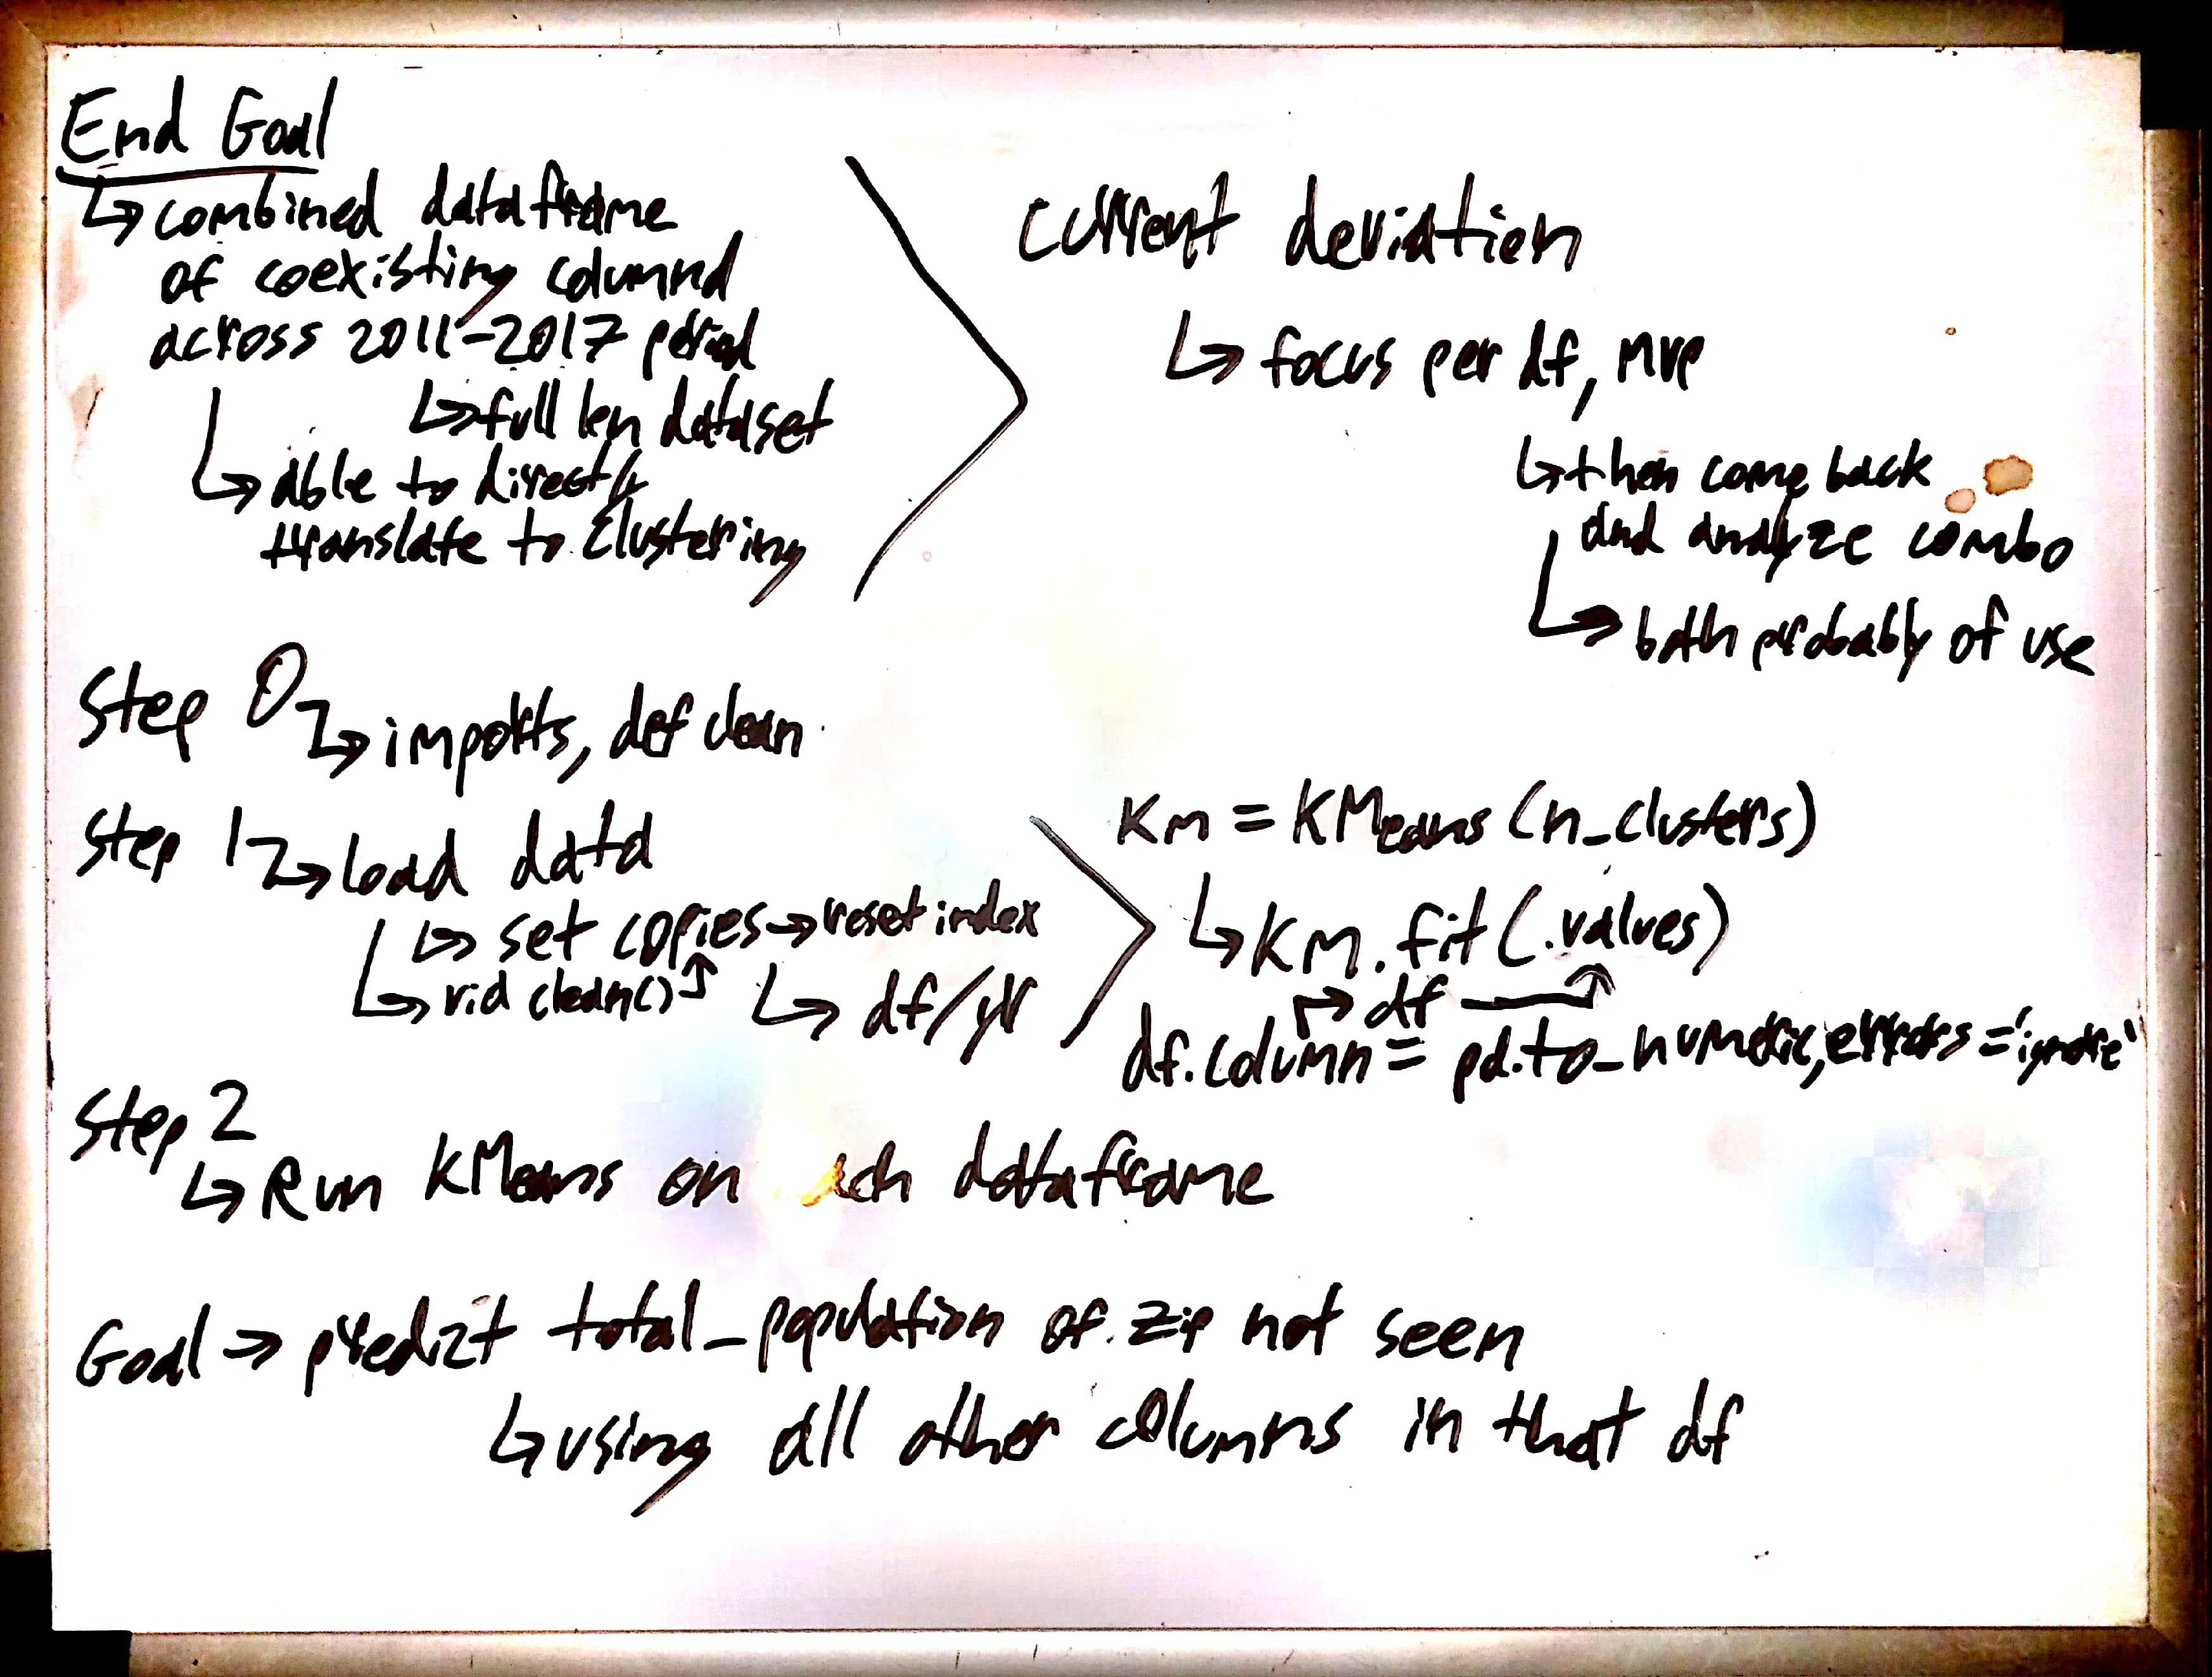 End Goal
↳ combined dataframe
of coexisting columnd
across 2011-2017 period
↳ full len dataset
↳ able to directly
translate to clustering
current deviation
↳ focus per df, MVP
↳ then come back
and analyze combo
↳ both probably of use
Step 0
↳ imports, def clean
Step 1
↳ load data
↳ set copies → reset index
↳ rid clean() ↑ ↳ df/yr
KM = KMeans (n_clusters)
↳ KM.fit(.values)
↱ df → ↑
df.column = pd.to_numeric, errors = 'ignore'
Step 2
↳ Run KMeans on ach dataframe
Goal → predict total_population of zip not seen
↳ using all other columns in that df